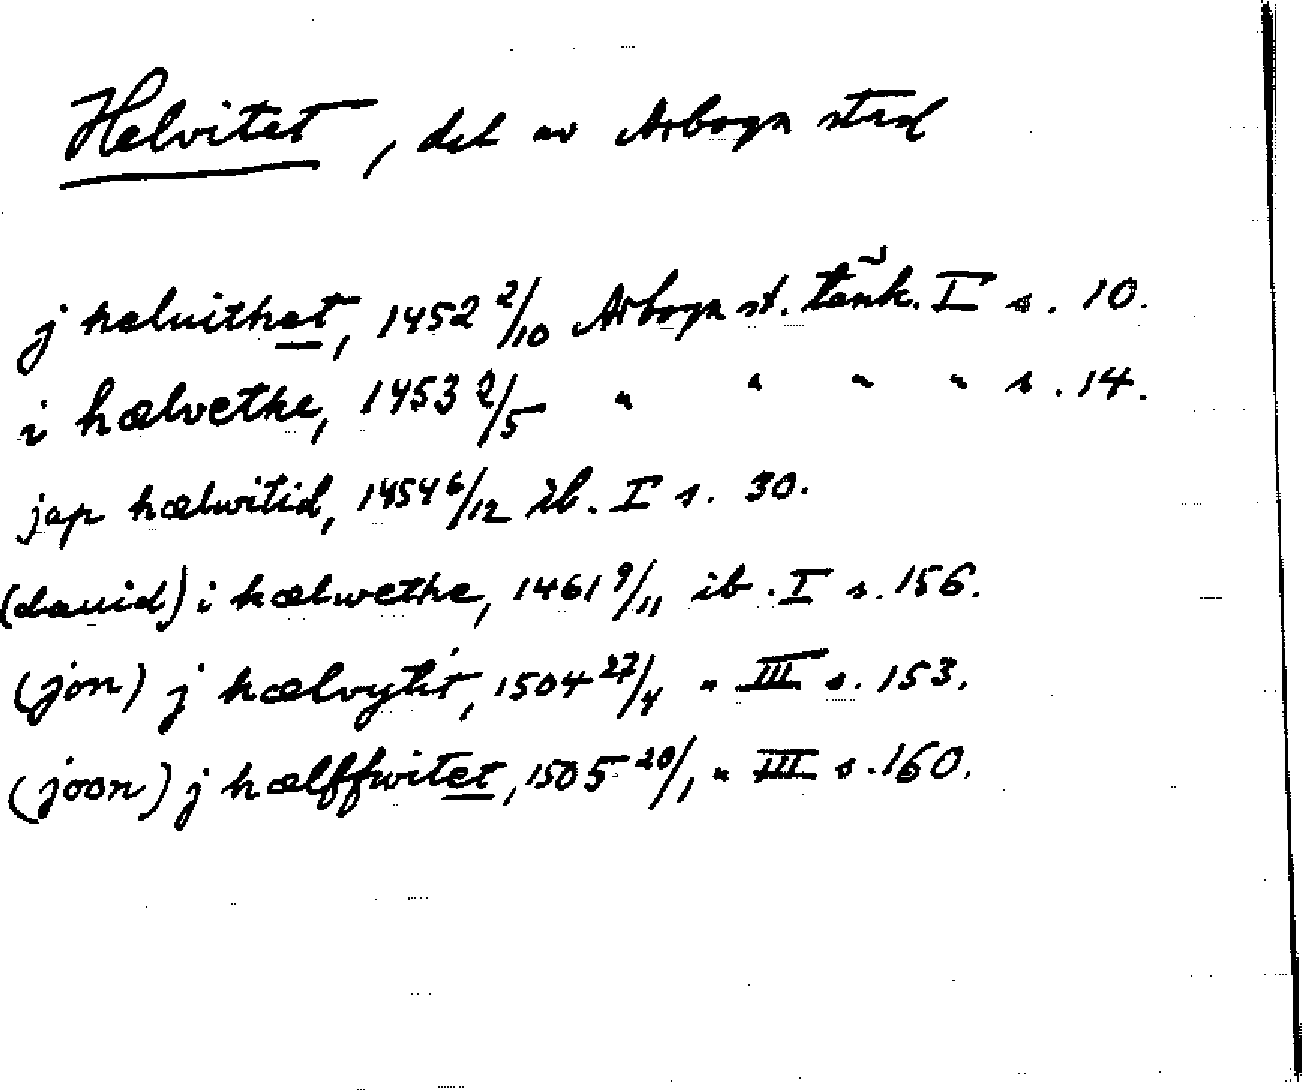 Helvitet, del av Arboga stad
j hæluithet, 1452 2/10 Arboga st. tänk. I s. 10.
i hælvethe, 1453 2/5 " " " " s. 14.
jap hælwitid, 1454 6/12 ib. I s. 30.
(dauid) i hælwethe, 1461 9/11 ib. I s. 156.
(jon) j hælvytit, 1504 27/4 " III s. 153.
(joon) j hælffwitet, 1505 20/1 " III s. 160.